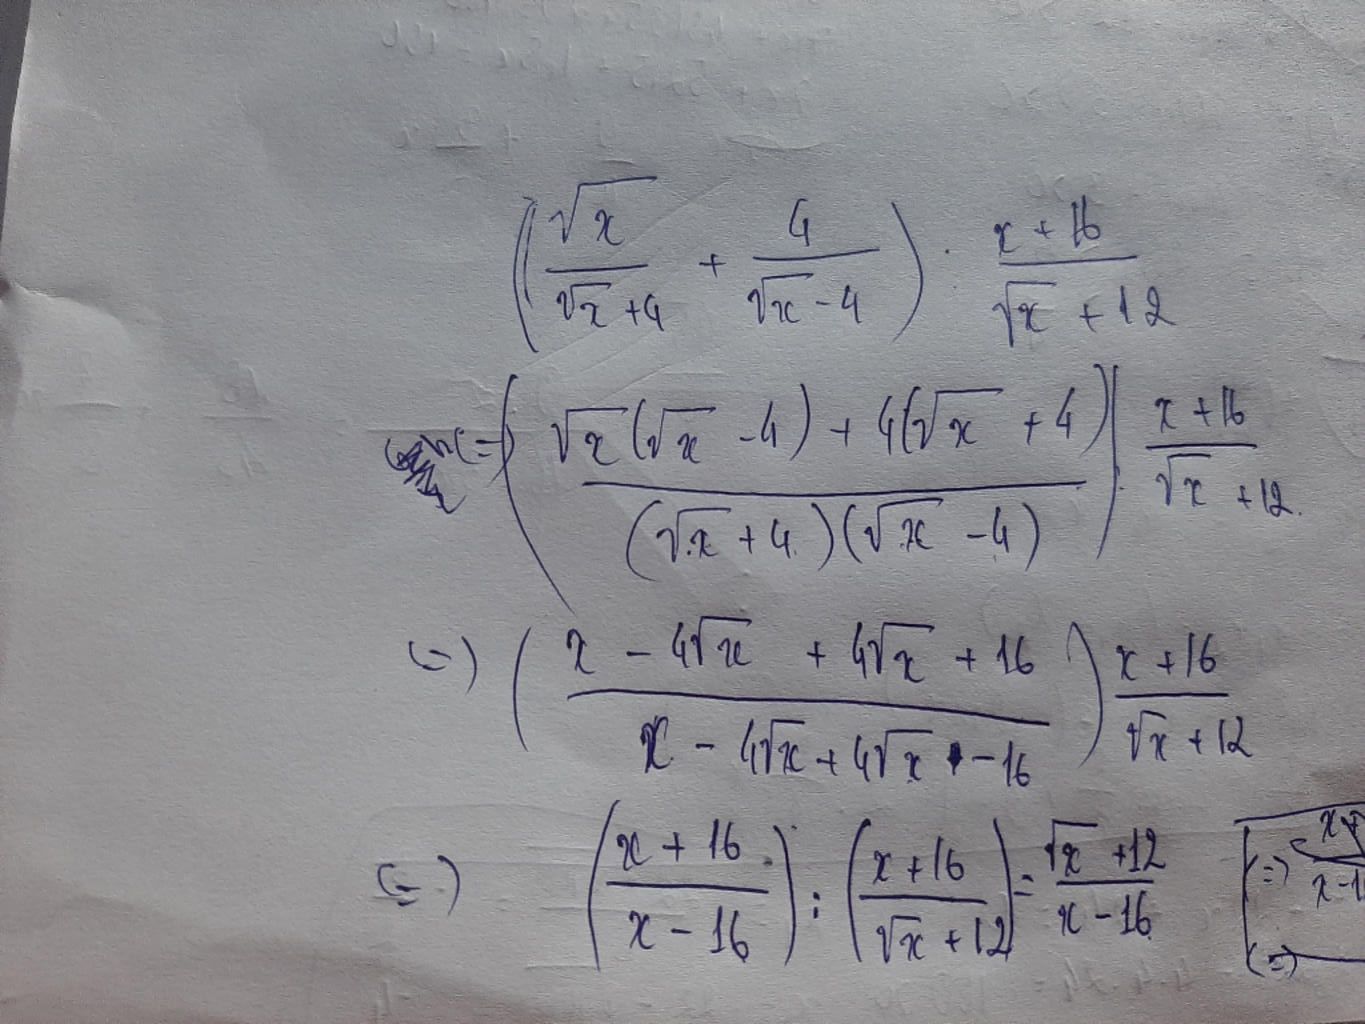 (√x/(√x+4) + 4/(√x-4)) · (x+16)/(√x+12)
(=) ((√x(√x-4)+4(√x+4))/((√x+4)(√x-4))) : (x+16)/(√x+12).
(=) ((x-4√x+4√x+16)/(x-4√x+4√x-16)) (x+16)/(√x+12)
(=) ((x+16)/(x-16)) : ((x+16)/(√x+12)) = (√x+12)/(x-16)
(=)
(=)